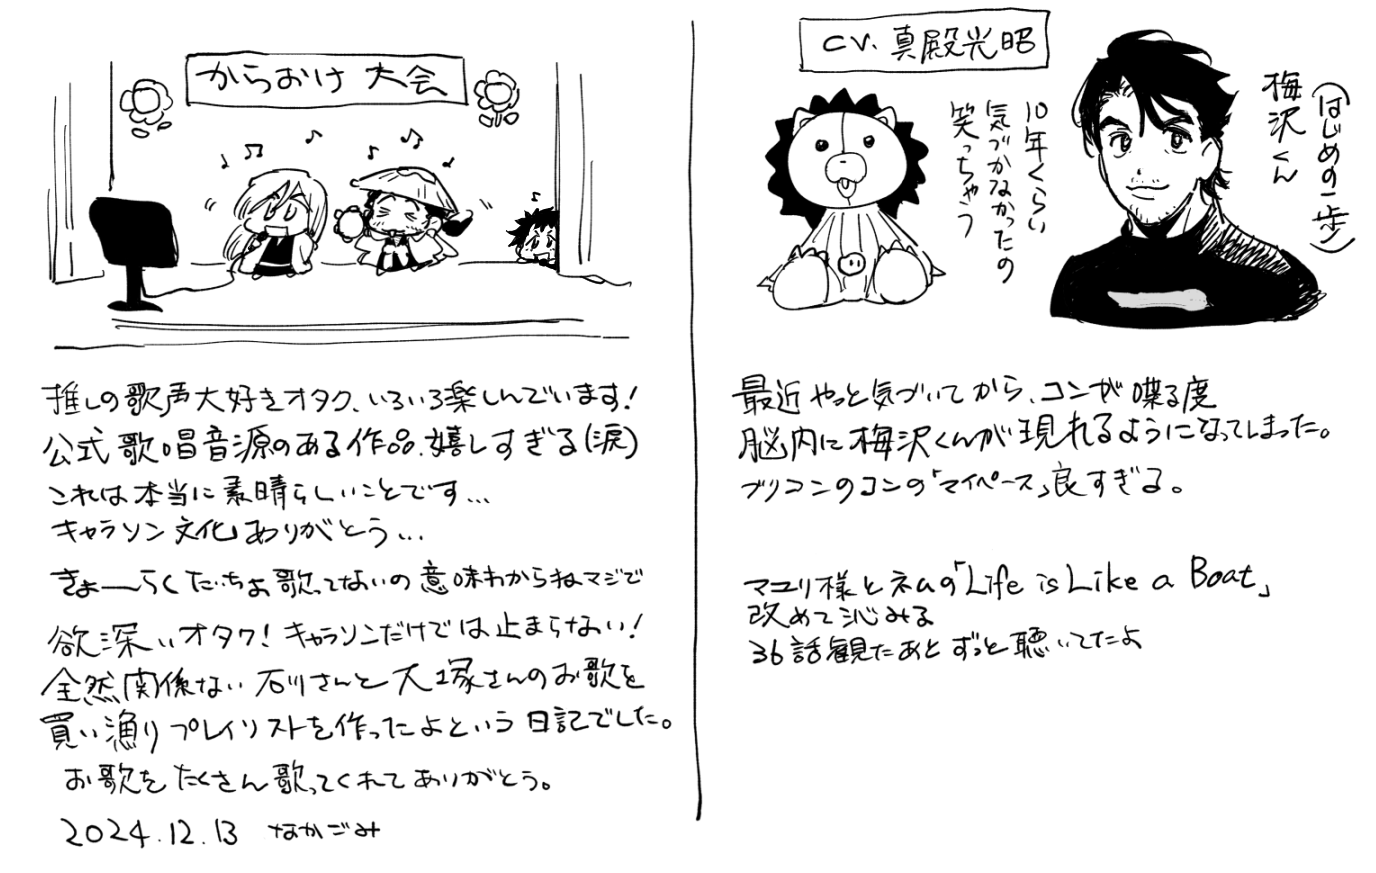 からおけ 大会
推しの歌声大好きオタク、いろいろ楽しんでいます!
公式歌唱音源のある作品、嬉しすぎる(涙)
これは本当に素晴らしいことです...
キャラソン文化ありがとう...
きょーらくたいちょ歌ってないの意味わからねマジで
欲深いオタク!キャラソンだけでは止まらない!
全然関係ない石川さんと大塚さんのお歌を
買い漁りプレイリストを作ったよという日記でした。
お歌をたくさん歌ってくれてありがとう。
2024.12.13 なかごみ
CV. 真殿光昭
10年くらい
気づかなかったの
笑っちゃう
(はじめの一歩)
梅沢くん
最近やっと気づいてから、コンが喋る度
脳内に梅沢くんが現れるようになってしまった。
ブリコンのコンの「マイペース」良すぎる。
マユリ様とネムの「Life is Like a Boat」
改めて沁みる
36話観たあとずっと聴いてたよ